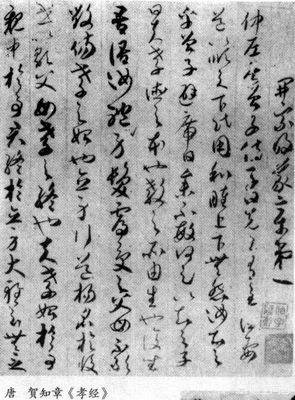 開宗明義章第一
仲尼居曾子侍子曰先王有至德要
道以順天下民用和睦上下無怨汝知之
乎曾子避席曰參不敏何足以知之子
曰夫孝德之本也教之所由生也復坐
吾語汝身體髮膚受之父母不敢
毀傷孝之始也立身行道揚名於後
世以顯父母孝之終也夫孝始於事
親中於事君終於立身大雅云無
唐 贺知章《孝经》